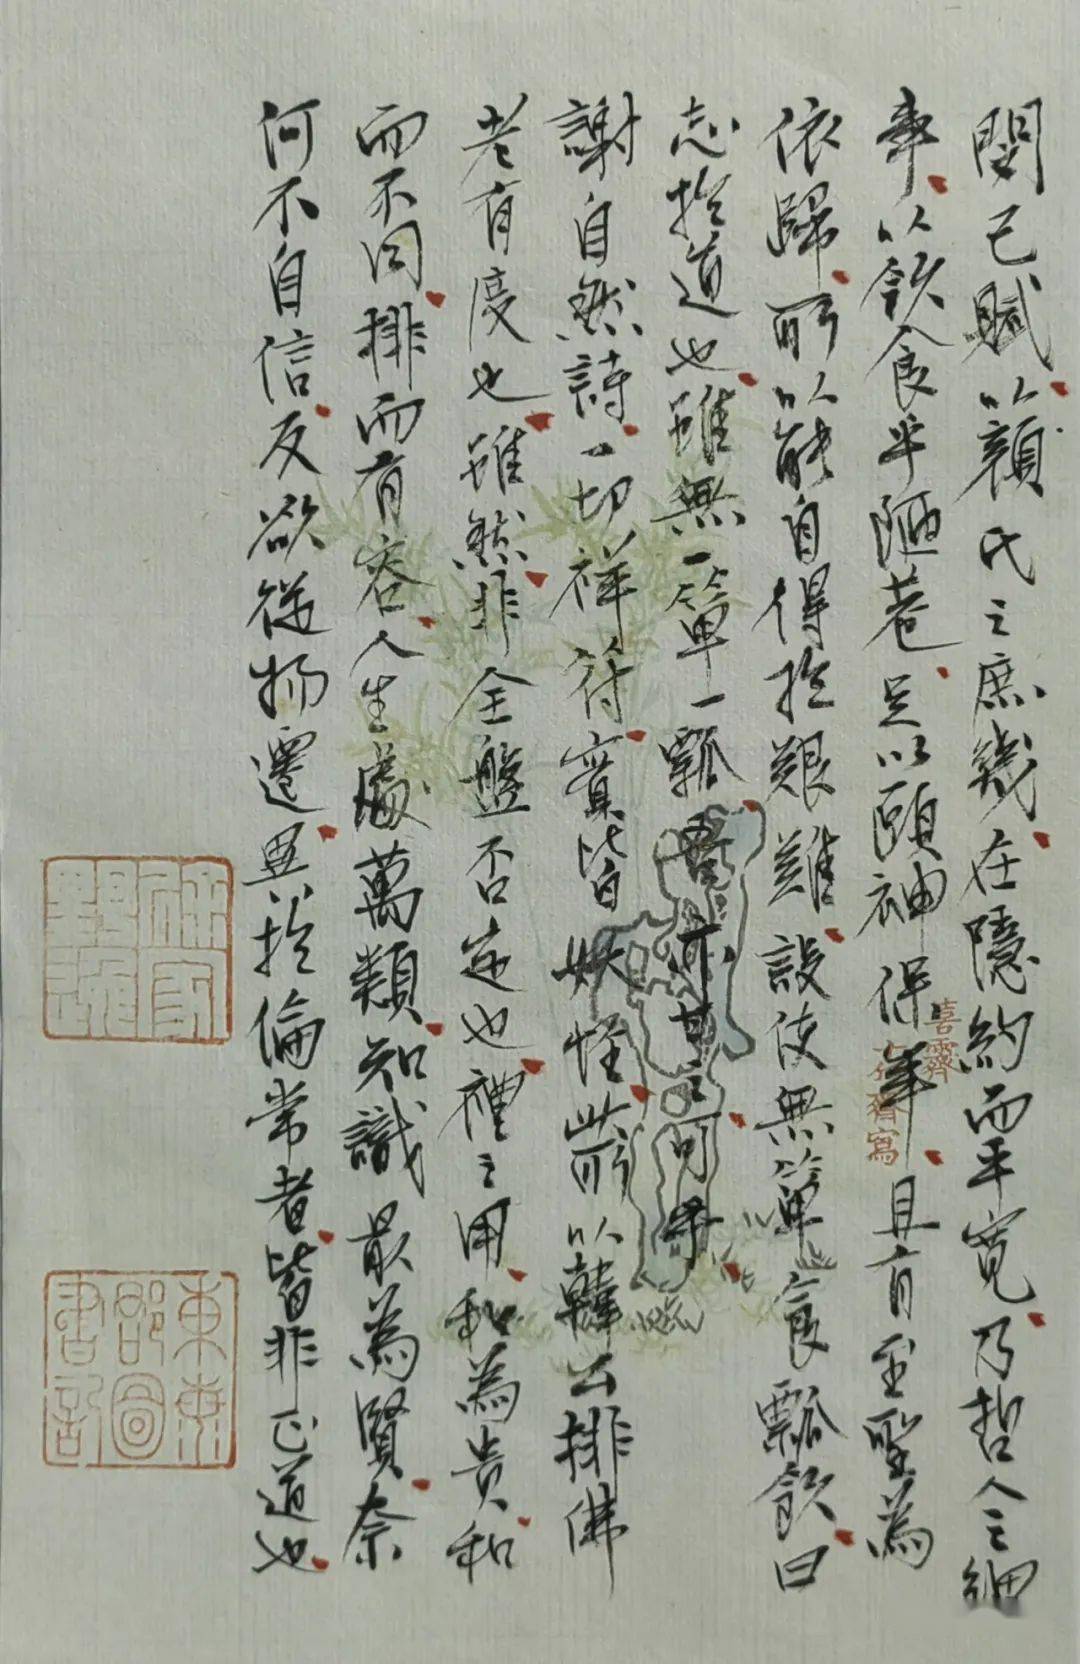 閔己賦以顏氏之庶幾在隱約而平寬乃哲人之細
事以飲食乎陋巷足以頤神保年且有至聖為
依歸所以能自得於艱難設使無簞食瓢飲曰
志於道也雖無一簞一瓢吾亦甘之可乎
謝自然詩一切祥符實皆妖怪茲以韓公排佛
老有度也雖然非全盤否定也禮之用和為貴和
而不同排而有容人生處萬類知識最為賢奈
何不自信反欲從物遷異於倫常者皆非正道也
喜齋
齋寫
東萊郡圖書記